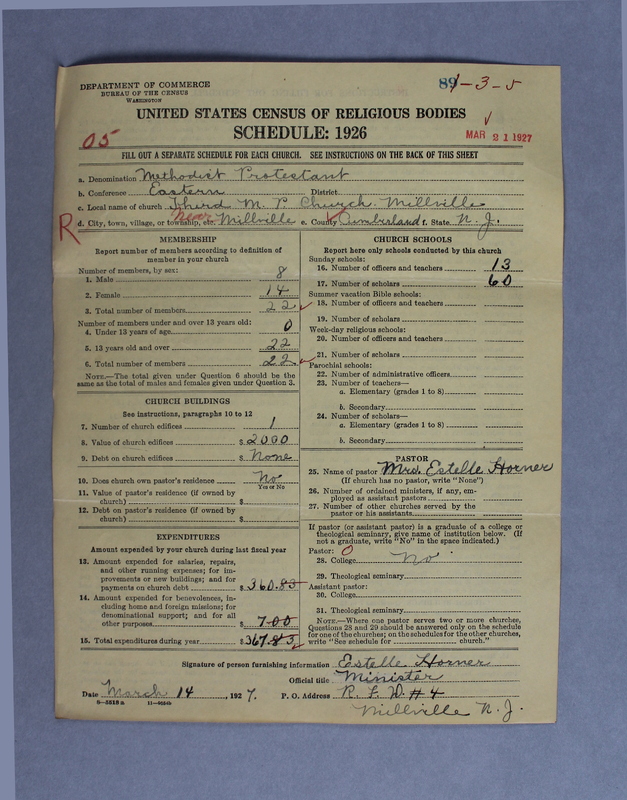 DEPARTMENT OF COMMERCE
BUREAU OF THE CENSUS
WASHINGTON
89-3-5
UNITED STATES CENSUS OF RELIGIOUS BODIES
SCHEDULE: 1926
05
MAR 21 1927
FILL OUT A SEPARATE SCHEDULE FOR EACH CHURCH. SEE INSTRUCTIONS ON THE BACK OF THIS SHEET
a. Denomination Methodist Protestant
b. Conference Eastern District
c. Local name of church Therd M. P. Church. Millville
d. City, town, village, or township, etc. near Millville e. County Cumberland f. State N. J.
R
MEMBERSHIP
Report number of members according to definition of
member in your church
Number of members, by sex:
1. Male 8
2. Female 14
3. Total number of members 22
Number of members under and over 13 years old:
4. Under 13 years of age 0
5. 13 years old and over 22
6. Total number of members 22
NOTE.—The total given under Question 6 should be the
same as the total of males and females given under Question 3.
CHURCH BUILDINGS
See instructions, paragraphs 10 to 12
7. Number of church edifices 1
8. Value of church edifices $ 2000
9. Debt on church edifices $ None
10. Does church own pastor's residence No
Yes or No
11. Value of pastor's residence (if owned by
church) $
12. Debt on pastor's residence (if owned by
church) $
EXPENDITURES
Amount expended by your church during last fiscal year
13. Amount expended for salaries, repairs,
and other running expenses; for im-
provements or new buildings; and for
payments on church debt $ 360.83
14. Amount expended for benevolences, in-
cluding home and foreign missions; for
denominational support; and for all
other purposes $ 7.00
15. Total expenditures during year $ 367.83
CHURCH SCHOOLS
Report here only schools conducted by this church
Sunday schools:
16. Number of officers and teachers 13
17. Number of scholars 60
Summer vacation Bible schools:
18. Number of officers and teachers
19. Number of scholars
Week-day religious schools:
20. Number of officers and teachers
21. Number of scholars
Parochial schools:
22. Number of administrative officers
23. Number of teachers—
a. Elementary (grades 1 to 8)
b. Secondary
24. Number of scholars—
a. Elementary (grades 1 to 8)
b. Secondary
PASTOR
25. Name of pastor Mrs. Estelle Horner
(If church has no pastor, write "None")
26. Number of ordained ministers, if any, em-
ployed as assistant pastors
27. Number of other churches served by the
pastor or his assistants
If pastor (or assistant pastor) is a graduate of a college or
theological seminary, give name of institution below. (If
not a graduate, write "No" in the space indicated.)
Pastor: 0
28. College No
29. Theological seminary
Assistant pastor:
30. College
31. Theological seminary
NOTE.—Where one pastor serves two or more churches,
Questions 28 and 29 should be answered only on the schedule
for one of the churches; on the schedules for the other churches,
write "See schedule for church."
Signature of person furnishing information Estelle Horner
Official title Minister
Date March 14, 1927. P. O. Address R. F. D. #4
8-5518 a
Millville N. J.